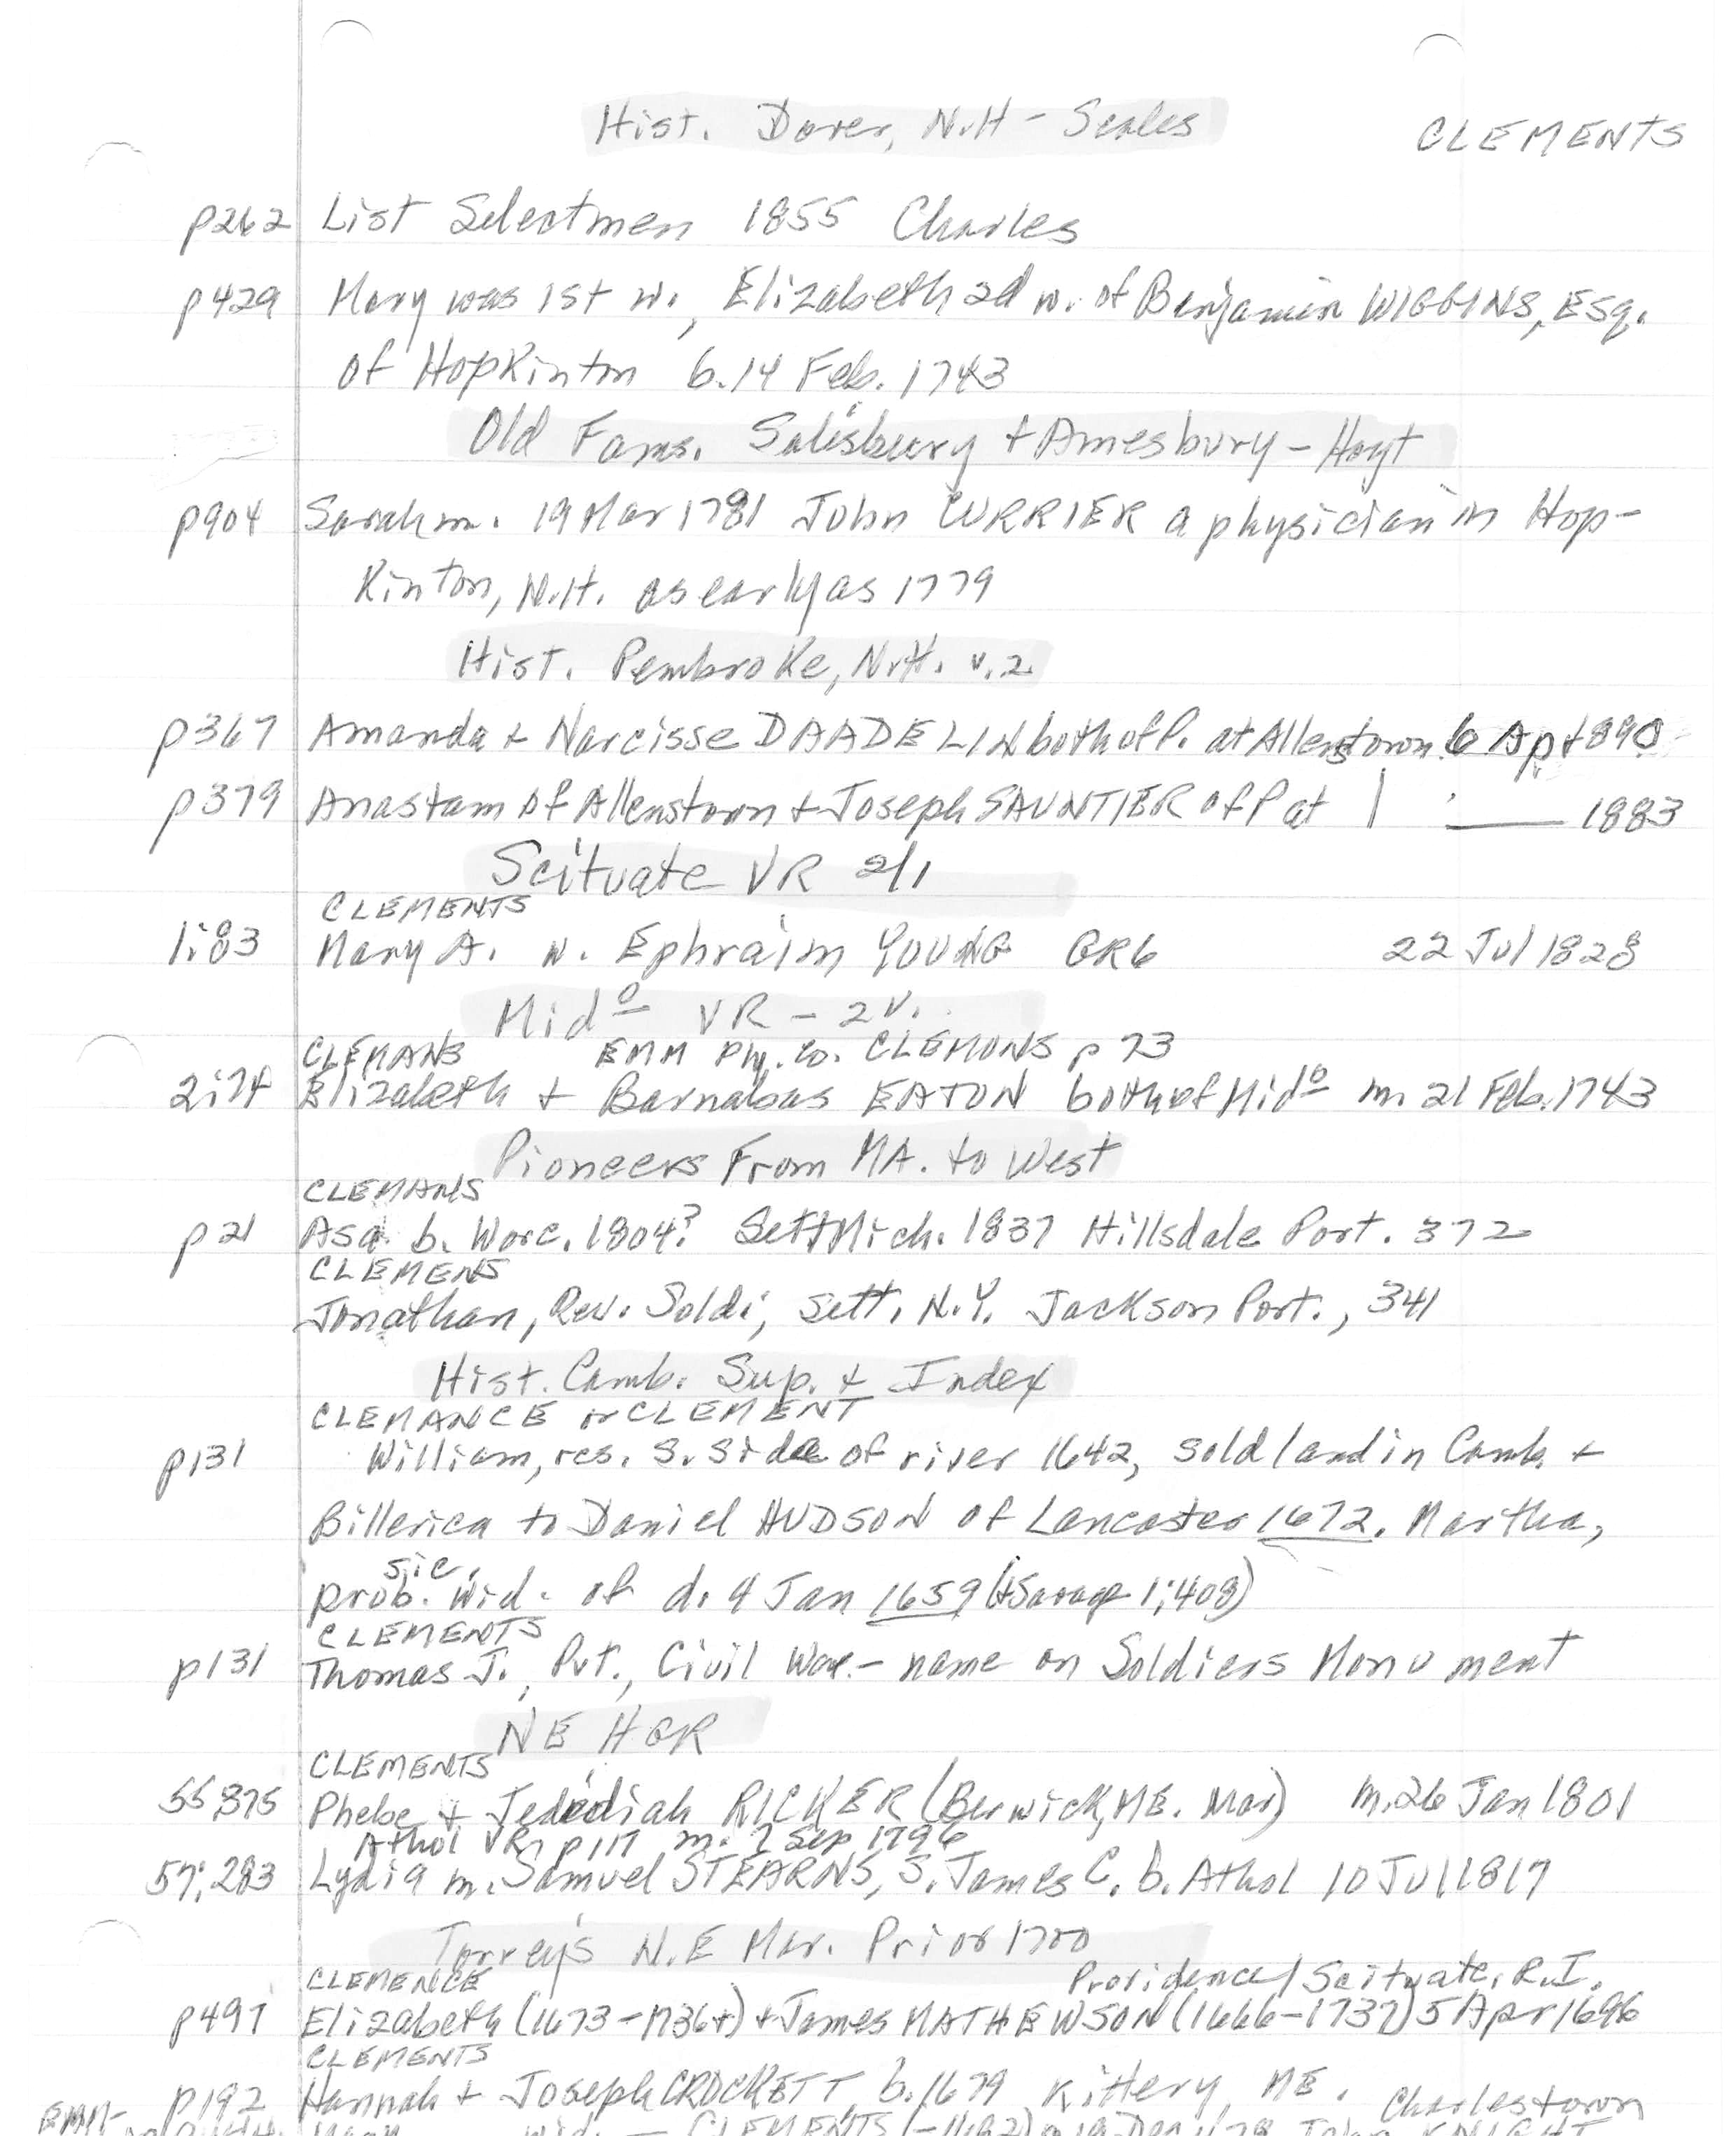 Hist. Dover, N.H - Scales CLEMENTS
p262 List Selectmen 1855 Charles
p429 Mary was 1st w., Elizabeth 2d w. of Benjamin WIGGINS, Esq.
of Hopkinton b. 14 Feb. 1743
Old Fams. Salisbury + Amesbury - Hoyt
p904 Sarah m. 19 Mar 1781 John CURRIER a physician in Hop-
kinton, N.H. as early as 1779
Hist. Pembroke, N.H. v.2
p367 Amanda + Narcisse DAADELIN both of P. at Allenstown 6 Apr 1890
p379 Anastam of Allenstown + Joseph SAUNTIER of P at 1883
Scituate VR 2/1
CLEMENTS
1:83 Mary A. w. Ephraim YOUNG GR6 22 Jul 1828
Mido VR - 2V.
CLEMANS EMM Ply. Co. CLEMONS p73
2:74 Elizabeth + Barnabas EATON both of Mido m. 21 Feb. 1743
Pioneers From MA. to West
CLEMANS
p21 Asa b. Worc. 1804? Sett Mich. 1837 Hillsdale Port. 372
CLEMENS
Jonathan, Rev. Soldi, sett. N.Y. Jackson Port., 341
Hist. Camb. Sup. + Index
CLEMANCE or CLEMENT
p131 William, res. S. side of river 1642, sold land in Camb. +
Billerica to Daniel HUDSON of Lancaster 1672. Martha,
sic.
prob. wid. of d. 4 Jan 1659 (+Savage 1:408)
CLEMENTS
p131 Thomas J., Pvt., Civil War - name on Soldiers Monument
NE HGR
CLEMENTS
55:375 Phebe + Jedediah RICKER (Berwick, ME. Mar) m. 26 Jan 1801
Athol VR p117 m. 7 Sep 1796
57:283 Lydia m. Samuel STEARNS, S. James C. b. Athol 10 Jul 1817
Torrey's N.E Mar. Prior 1700
CLEMENCE Providence/Scituate, R.I.
p497 Elizabeth (1673-1736+) + James MATHEWSON (1666-1737) 5 Apr 1696
CLEMENTS
p192 Hannah + Joseph CROCKETT, b. 1679 Kittery, ME. Charlestown
EMM- wid. — CLEMENTS (-1692) 19 Dec 1678 John KNIGHT